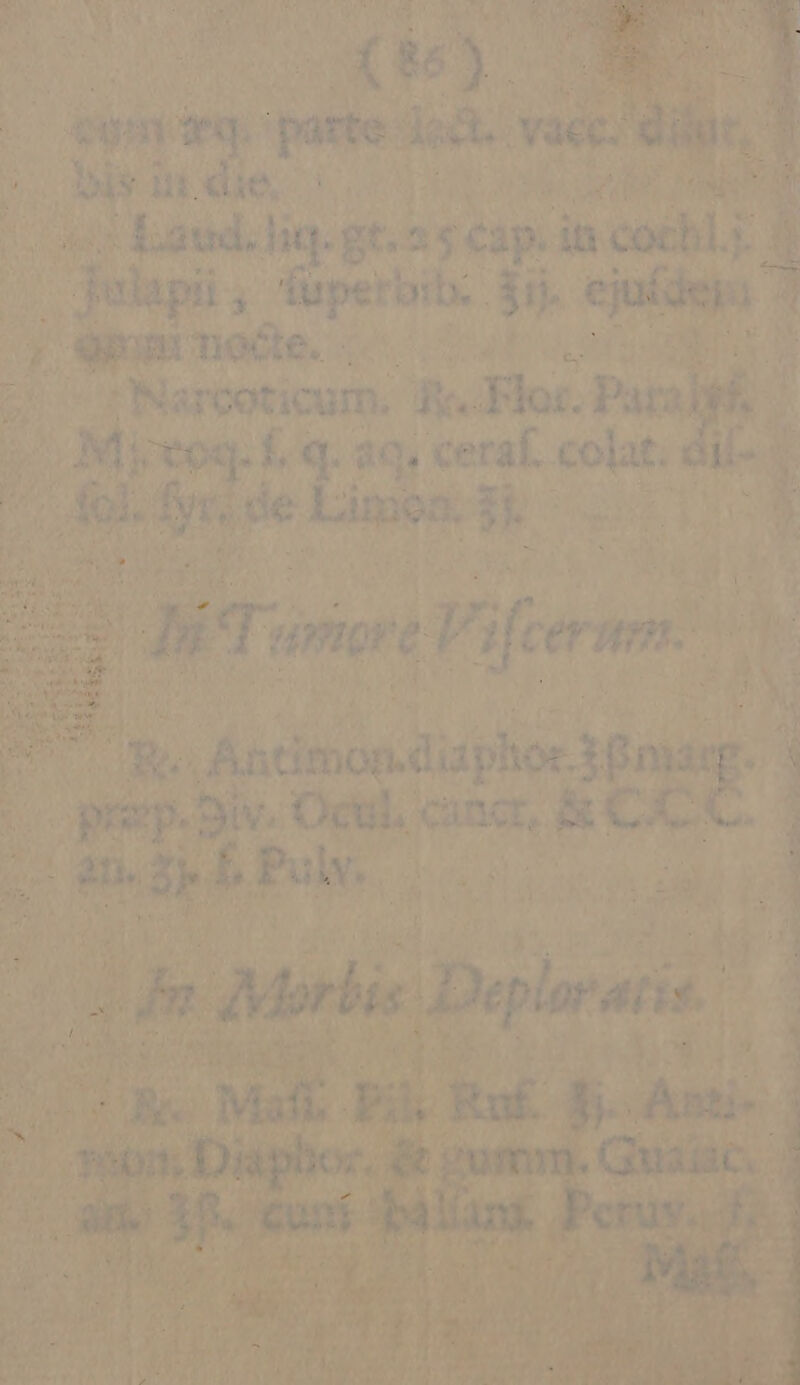 ( 86 )
cum æq. parte lact. vacc. dilut,
bis in die.
Laud. liq. gt. 25 cap. in cochl. j.
Julapii, ſuperbib. ℥ij. ejuſdem
omni nocte.
Narcoticum. ℞. Flor. Paralyſ.
Mj. coq. ſ. q. aq. ceraſ. colat. diſ-
ſol. ſyr. de Limon. ℥j.
In Tumore Viſcerum.
℞. Antimon. diaphor. ʒß marg.
præp. ℈iv. Ocul. cancr. & C.C.C.
an. ʒj. f. Pulv.
In Morbis Deploratis.
℞. Maſſ. Pil. Ruf. ʒj. Anti-
mon. Diaphor. & gumm. Guaiac.
an. ʒß. cum balſam. Peruv. f.
Maſſ.